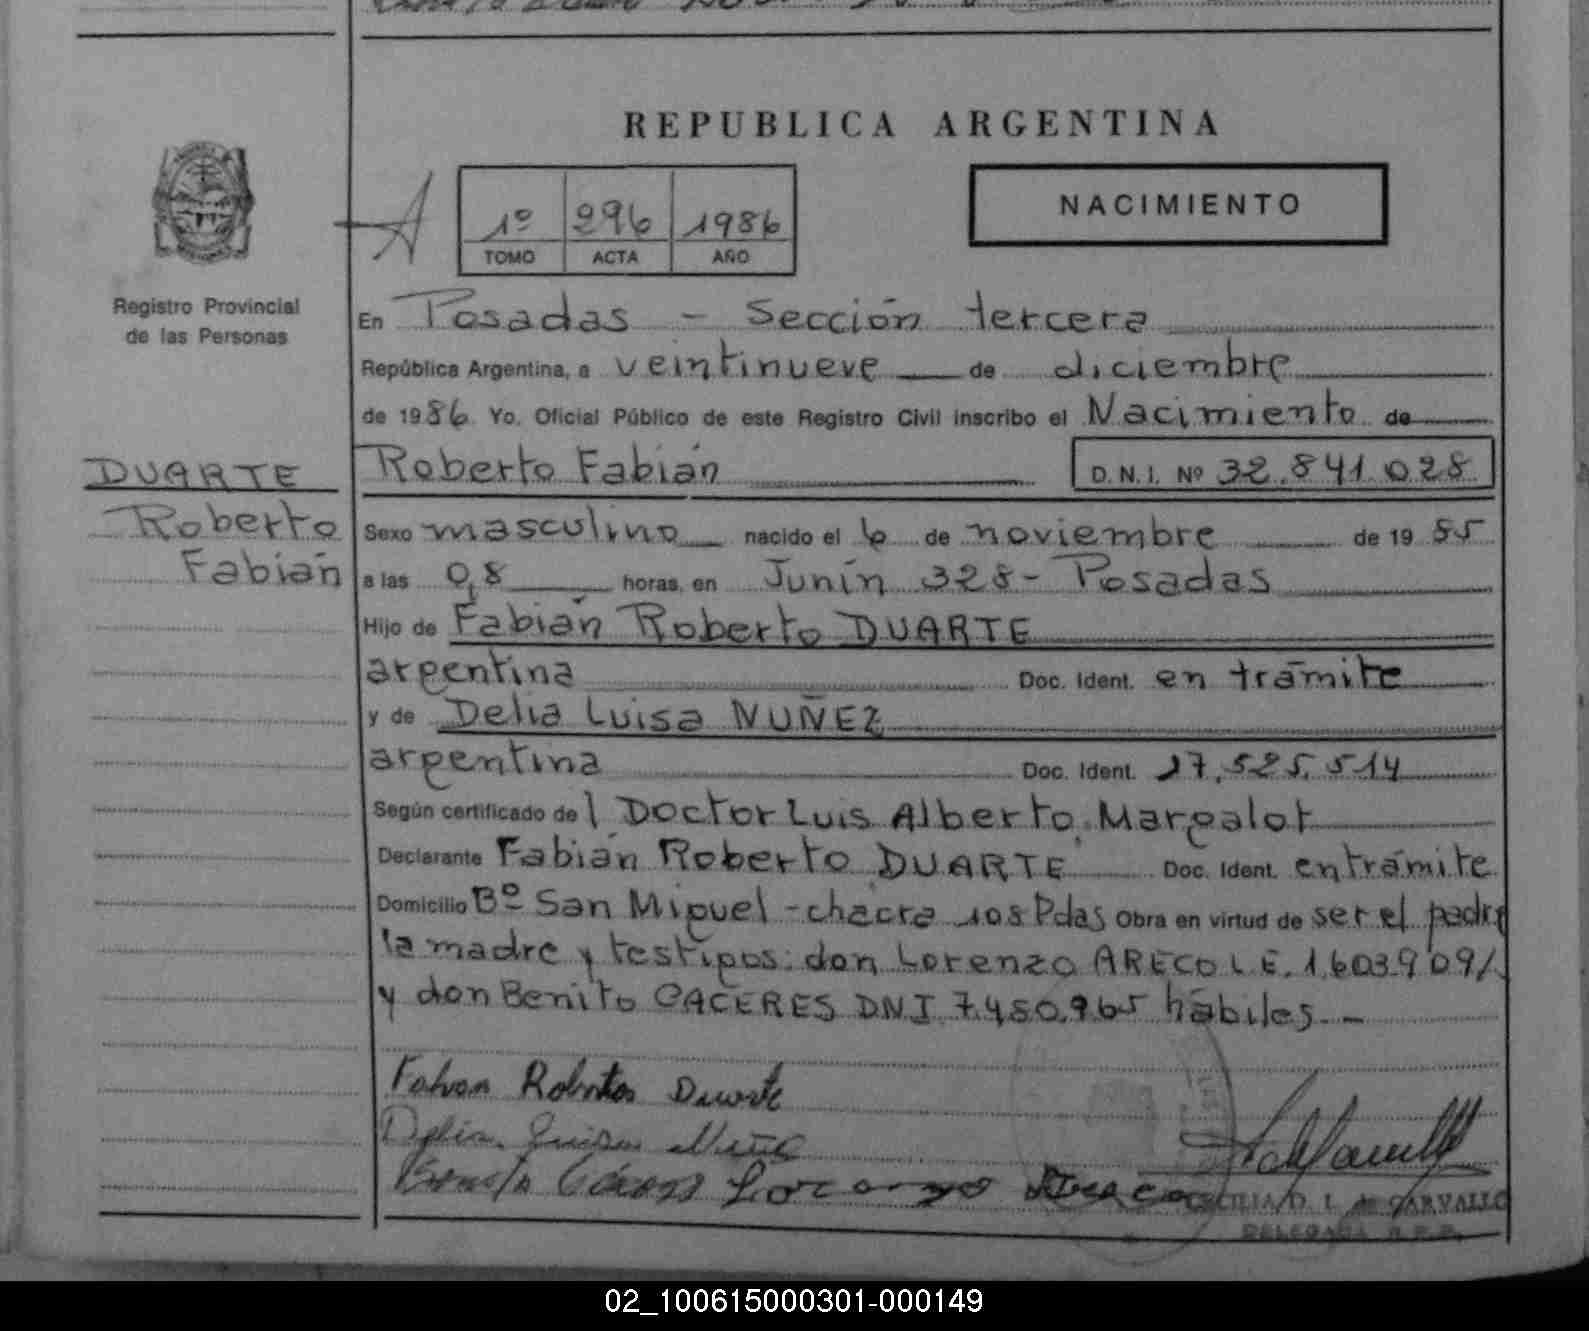 REPUBLICA ARGENTINA
NACIMIENTO
1º 296 1986
TOMO ACTA AÑO
Registro Provincial
de las Personas
En Posadas - Sección tercera
República Argentina, a veintinueve de diciembre
de 1986 Yo, Oficial Público de este Registro Civil inscribo el Nacimiento de
DUARTE
Roberto
Fabián
Roberto Fabián D.N.I. Nº 32.841.028
Sexo masculino nacido el 6 de noviembre de 19 85
a las 0,8 horas, en Junín 328 - Posadas
Hijo de Fabián Roberto DUARTE
argentina Doc. Ident. en trámite
y de Delia Luisa NUÑEZ
argentina Doc. Ident. 17.525.514
Según certificado del Doctor Luis Alberto Margalot
Declarante Fabián Roberto DUARTE Doc. Ident. en trámite
Domicilio Bº San Miguel - chacra 108 Pdas Obra en virtud de ser el padre
la madre y testigos: don Lorenzo ARECO L.E. 1.603.909/
y don Benito CACERES DNI 7.480.965 hábiles. -
Fabian Roberto Duarte
Delia Luisa Nuñe
Benito Cáceres Lorenzo Areco
CECILIA D. L. de CARVALLO
DELEGADA R.P.P.
02_100615000301-000149